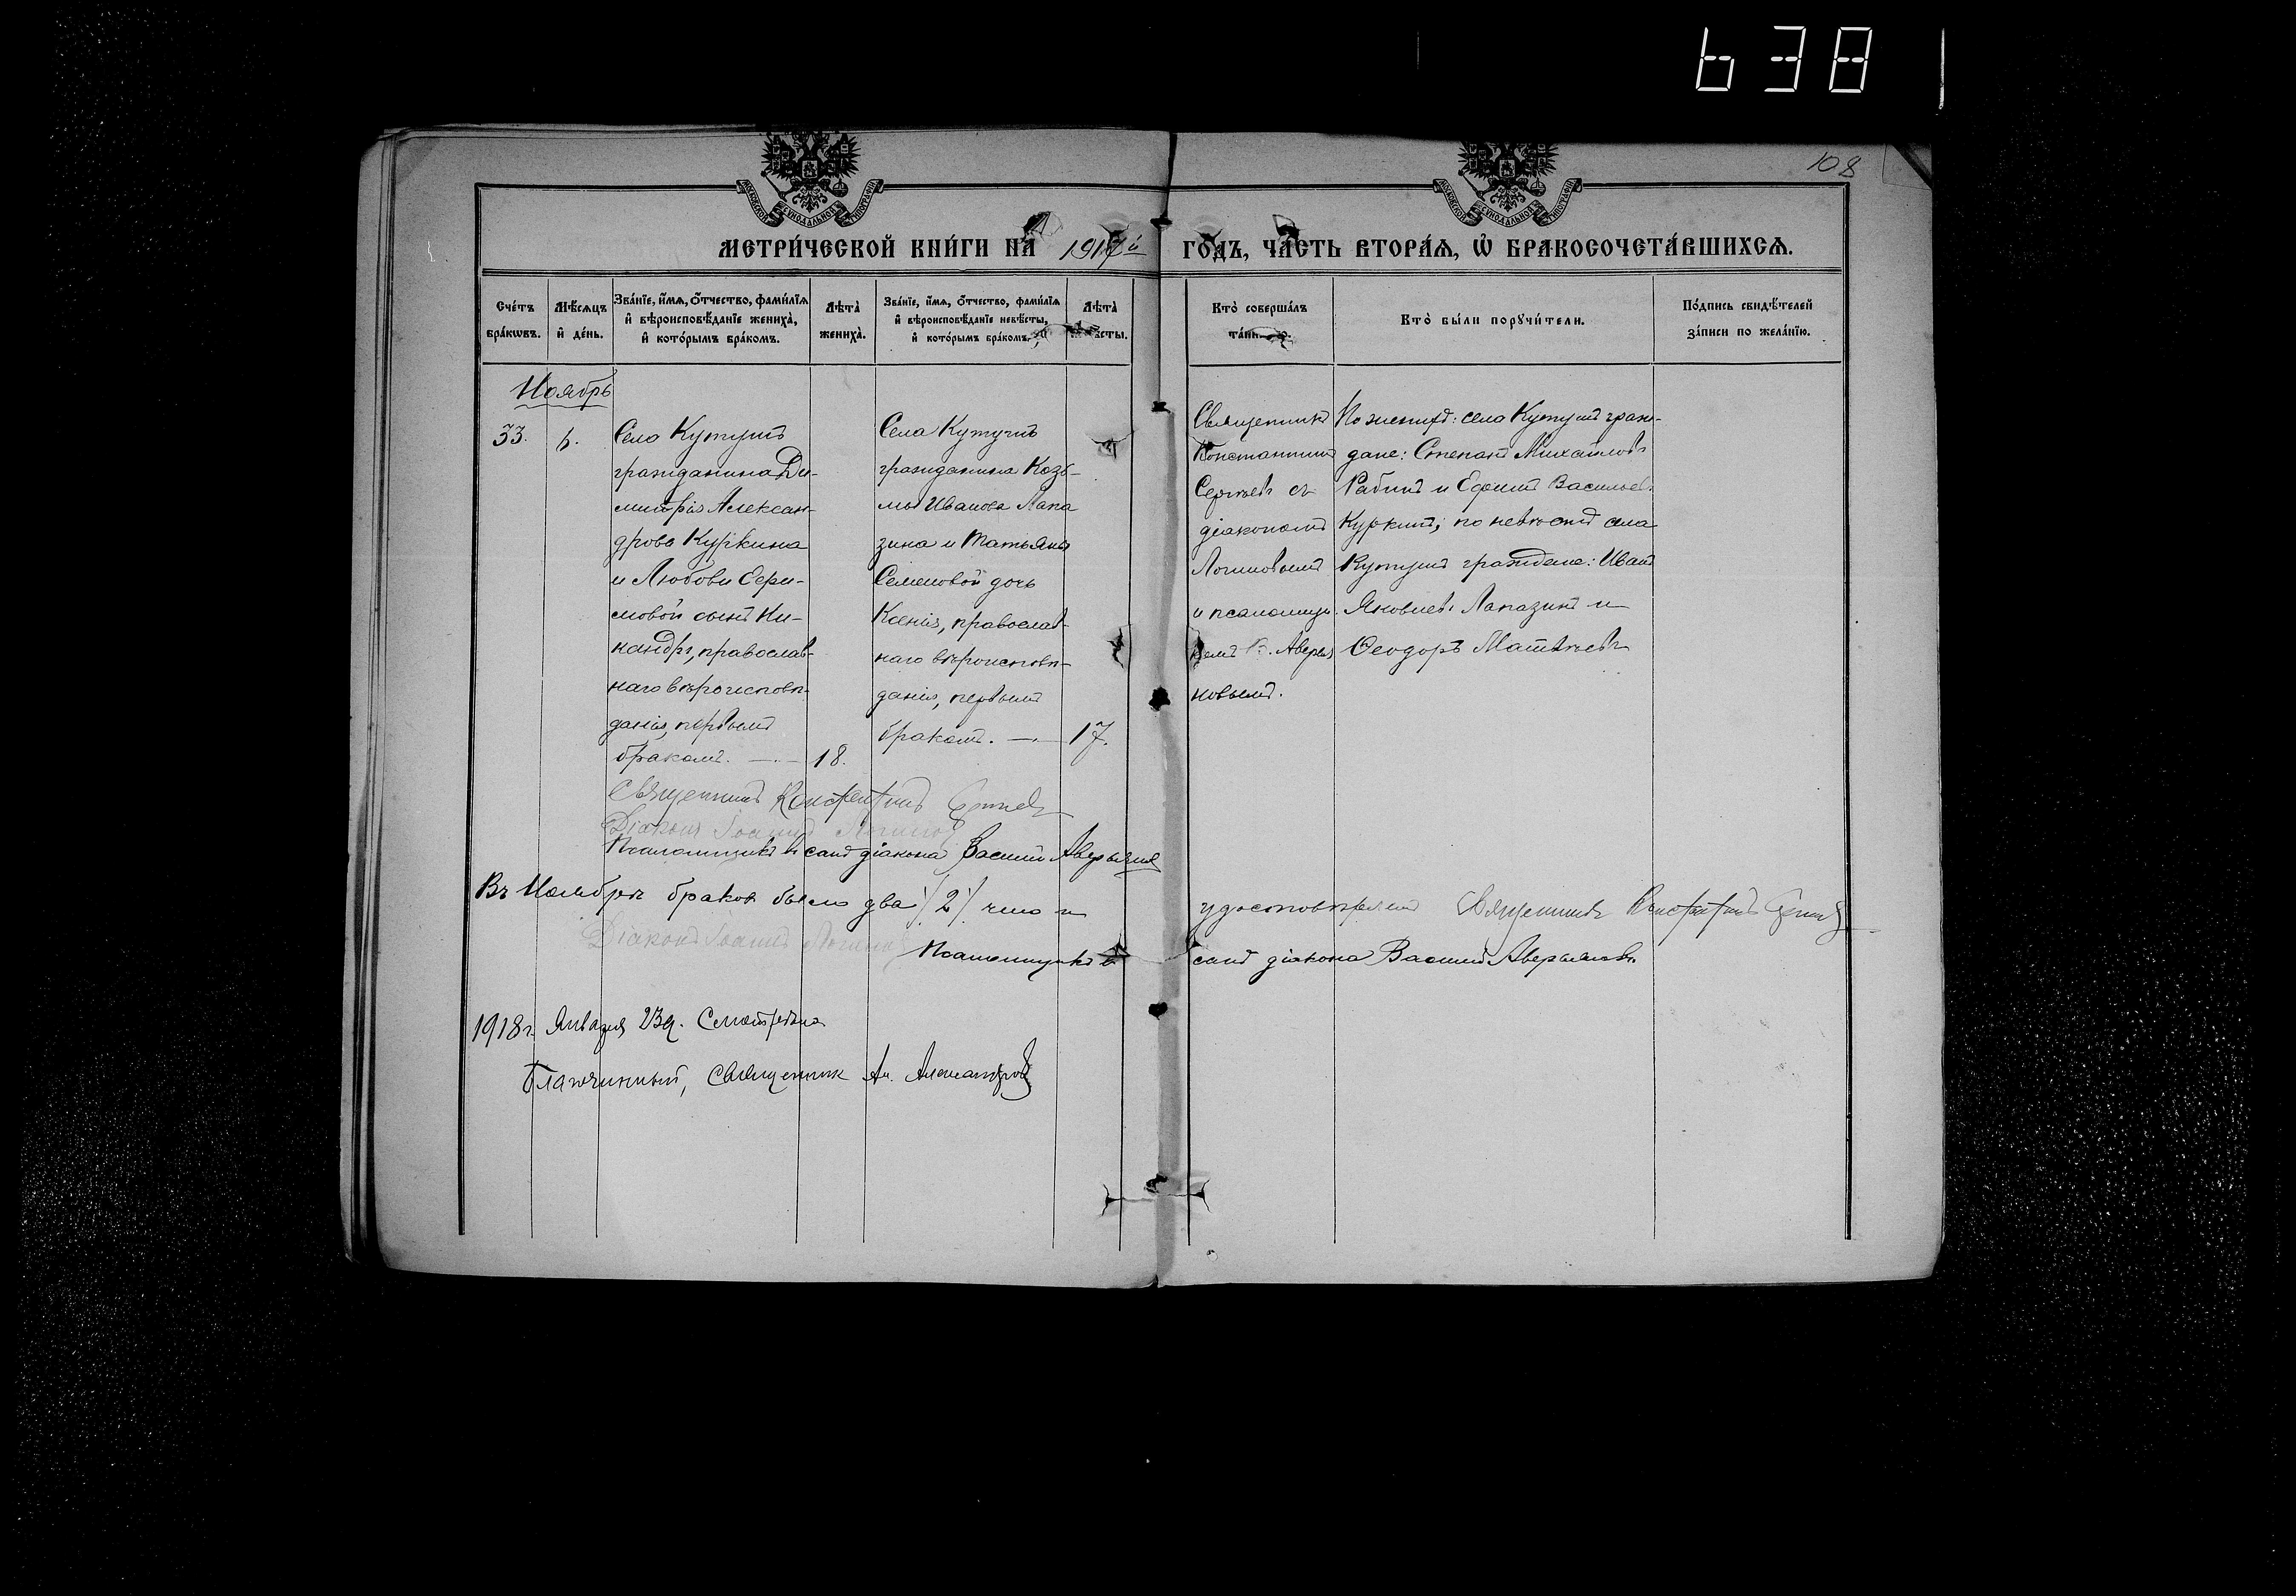 6381
108
МОСКОВСКОЙ СѴНОДАЛЬНОЙ ТИПОГРАФІИ
МОСКОВСКОЙ СѴНОДАЛЬНОЙ ТИПОГРАФІИ
МЕТРИ́ЧЕСКОЙ КНИ́ГИ НА 1917й ГО́ДЪ, ЧА́СТЬ ВТОРА́Ѧ, Ѽ БРАКОСОЧЕТА́ВШИХСѦ.
Сче́тъ бра́кѡвъ.
Мѣ́сѧцъ и҆ де́нь.
Зва́нїе, и҆́мѧ, ѻ҆́тчество, фами́лїѧ и҆ вѣроисповѣ́данїе жениха̀, и҆ кото́рымъ бра́комъ.
Лѣта̀ жениха̀.
Зва́нїе, и҆́мѧ, ѻ҆́тчество, фами́лїѧ и҆ вѣроисповѣ́данїе невѣ́сты, и҆ кото́рымъ бра́комъ.
Лѣта̀
Кто̀ соверша́лъ
Кто̀ бы́ли порꙋчи́тели.
По́дпись свидѣ́телей за́писи по жела́нїю.
Ноябрь
33.
6.
Села Кутушъ
гражданина Ди-
митрія Алексан-
дрова Куркина
и Любови Ефи-
мовой сынъ Ни-
кандръ, православ-
наго вѣроисповѣ-
данія, первымъ
бракомъ. —
18.
Села Кутушъ
гражданина Козь-
мы Иванова Лапа
зина и Татьяны
Семеновой дочь
Ксенія, православ-
наго вѣроисповѣ-
данія, первымъ
бракомъ. —
17.
Священникъ
Константинъ
Сергѣевъ съ
діакономъ
Логиновымъ
и псаломщи-
комъ В. Аверья
новымъ.
По женихѣ: села Кутушъ граж-
дане: Степанъ Михайловъ
Рябинъ и Ефимъ Васильевъ
Куркинъ; по невѣстѣ села
Кутушъ граждане: Иванъ
Яковлевъ Лапазинъ и
Ѳеодоръ Матвѣевъ
Священникъ Константинъ Сергѣевъ
Діаконъ Іоаннъ Логиновъ
Псаломщикъ въ санѣ діакона Василій Аверьяновъ
Въ Ноябрѣ браковъ было два /2/ что и удостовѣряемъ Священникъ Константинъ Сергѣевъ
Діаконъ Іоаннъ Логиновъ
Псаломщикъ въ санѣ діакона Василій Аверьяновъ.
1918 г. Января 23 д. Смотрѣлъ
Благочинный, Священник Ал. Александровъ